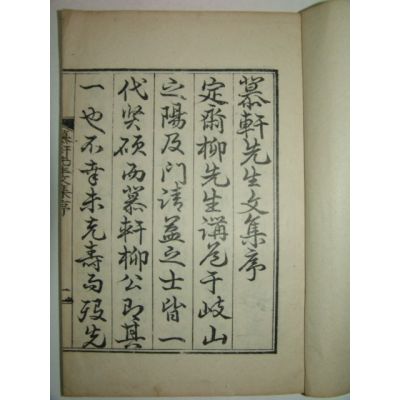 慕軒先生文集序
定齋柳先生講道于岐山
之陽及门請益之士皆一
代賢碩而慕軒柳公即其
一也不幸未克壽而歿先
慕軒先生文集序
一